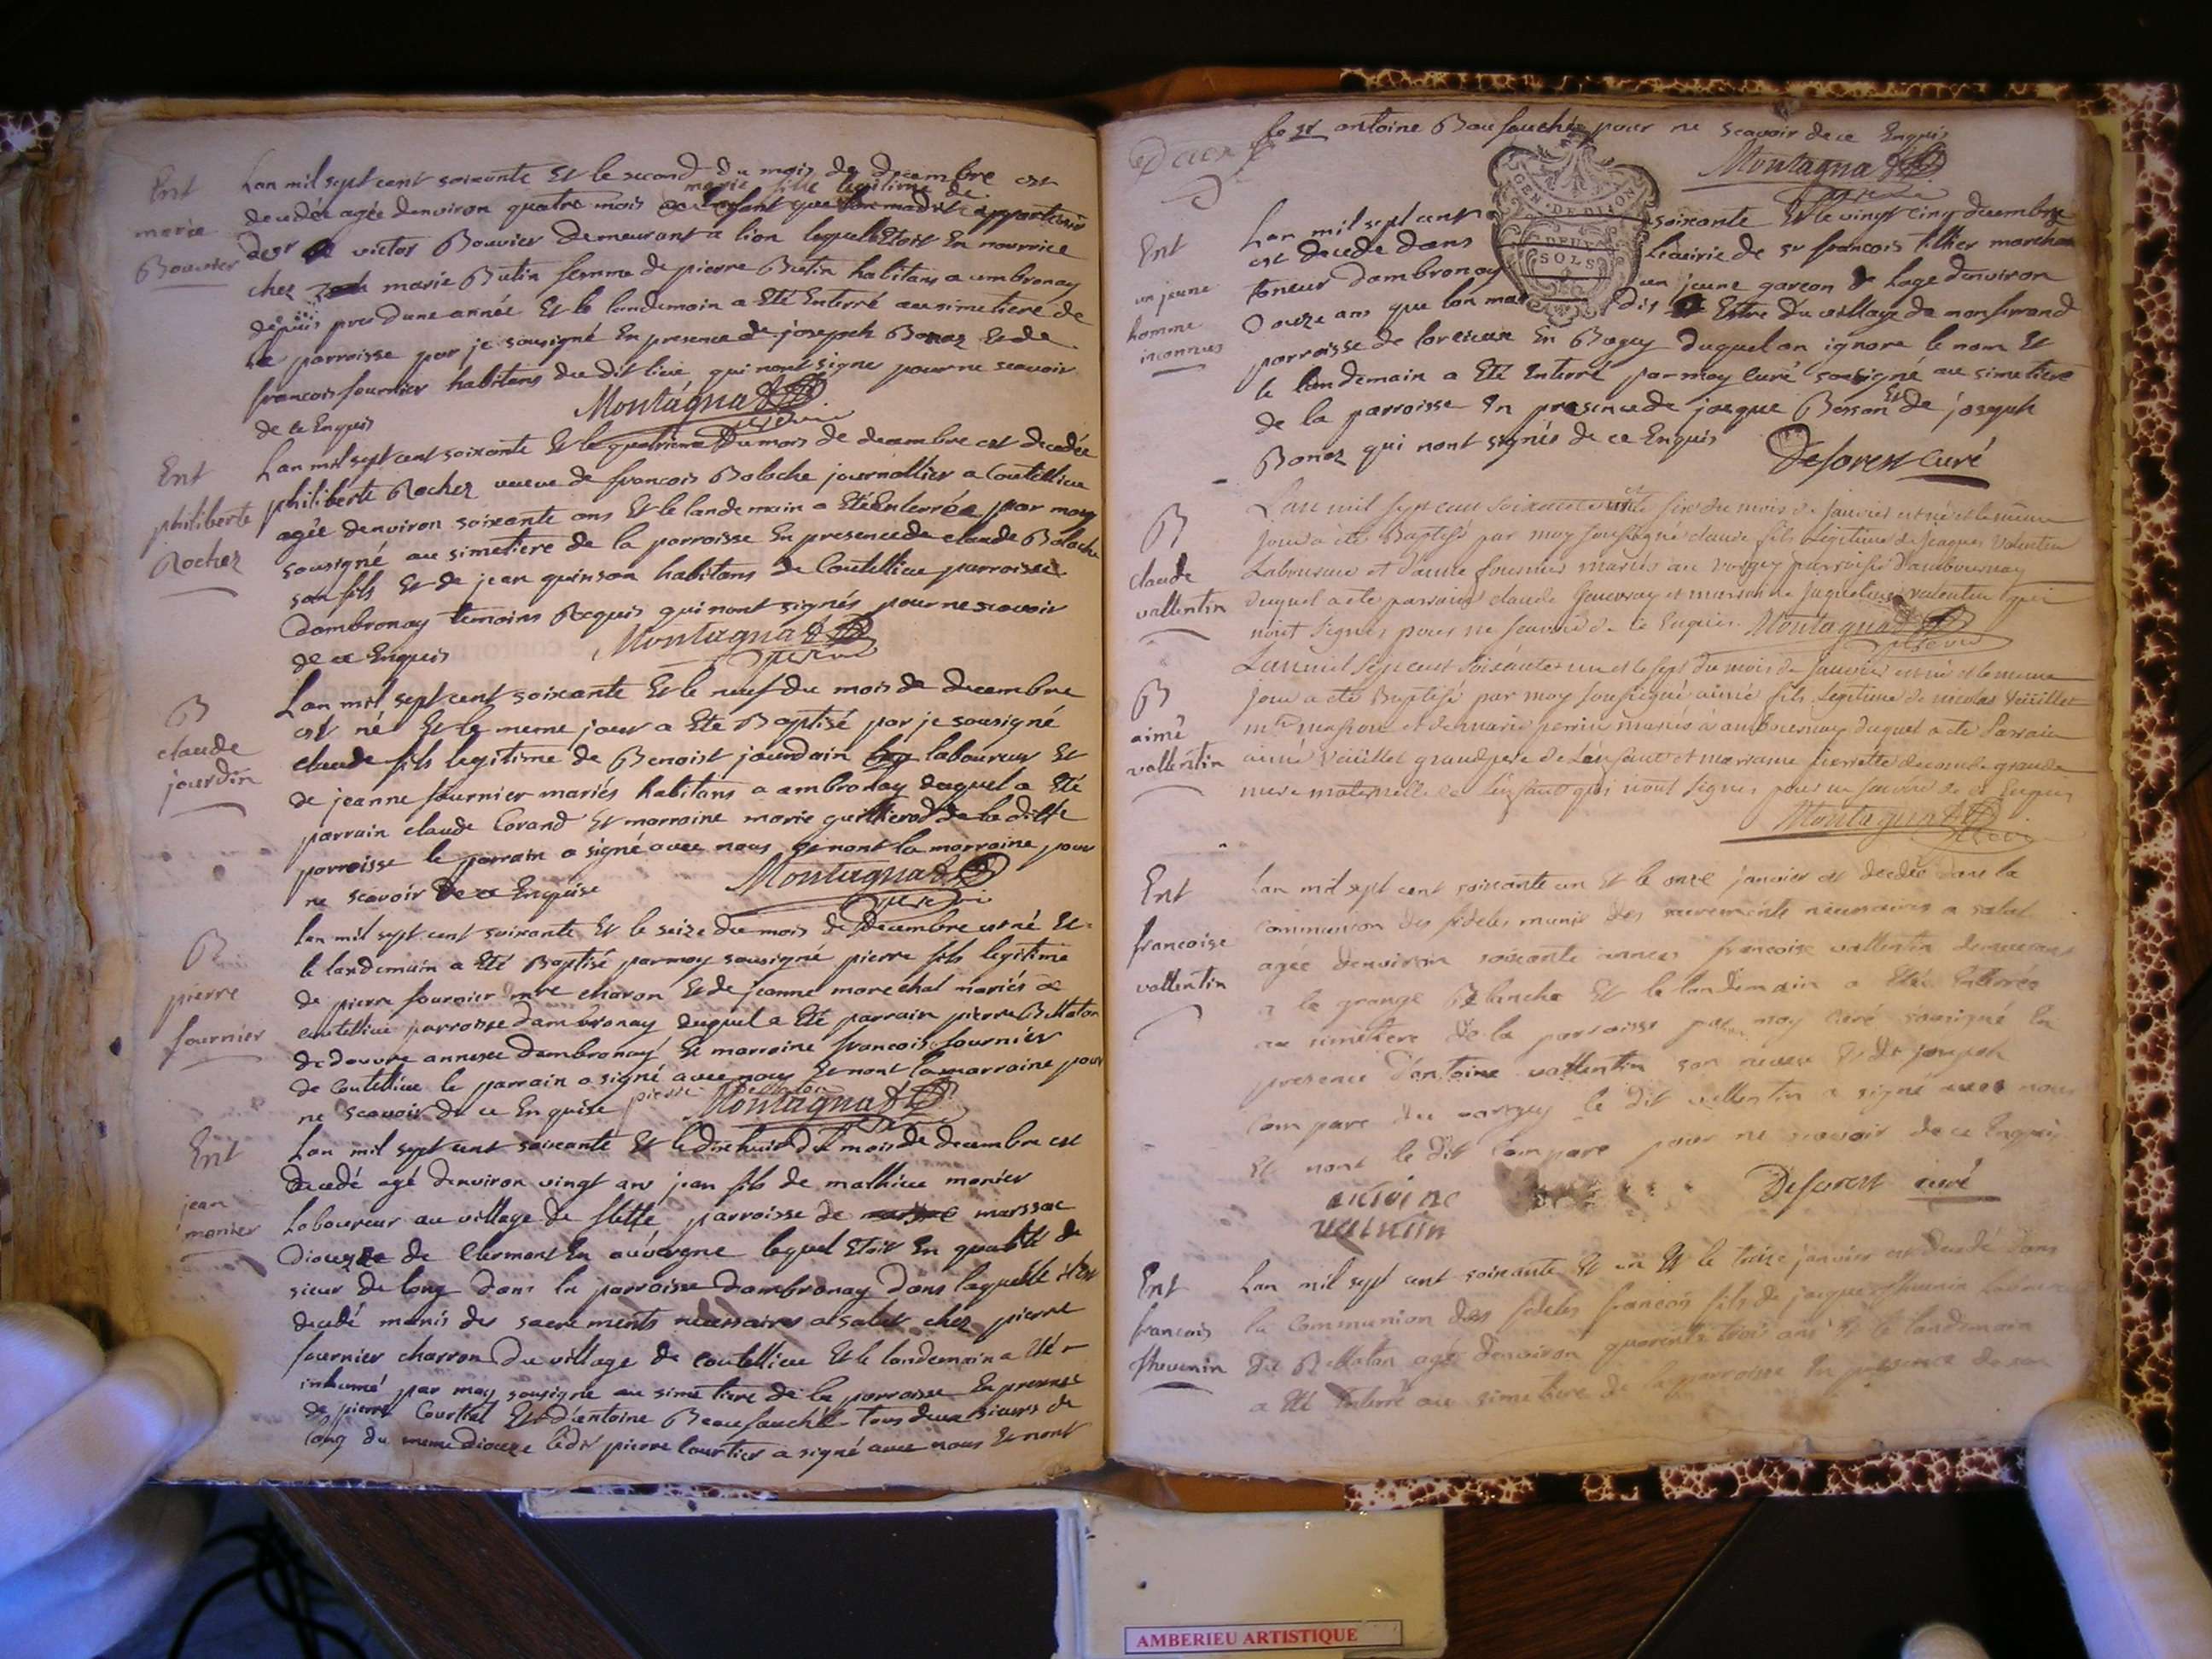 Ent
marie
Bouvier
Lan mil sept cent soixante Et le second du mois de decembre est
marie fille legitime de
decedée agée denviron quatre mois
de sr victor Bouvier demeurant a lion lequel Etoit En nourrice
chez marie Butin femme de pierre Butin habitans a ambronay
depuis pres dune année Et le landemain a Eté Enterré au simetiere de
la parroisse par je sousigné En presence de joseph Bonaz Et de
francois fournier habitans du dit lieu qui nont signe pour ne scavoir
de ce Enquis
Montagnat
Ent
philiberte
Rochez
Lan mil sept cent soixante Et le quatrieme du mois de decembre est decedée
philiberte Rochez veuve de francois Boloche journallier a Coutellieu
agée denviron soixante ans Et le landemain a Eté Enterrée par moy
sousigné au simetiere de la parroisse En presence de claude Boloche
son fils Et de jean quinson habitans de Coutellieu parroisse
dambronay temoins Requis qui nont signés pour ne scavoir
de ce Enquis
Montagnat
B
claude
jourdin
Lan mil sept cent soixante Et le neuf du mois de decembre
est né Et le meme jour a Eté Baptisé par je sousigné
claude fils legitime de Benoist jourdain laboureur Et
de jeanne fournier mariés habitans a ambronay duquel a Eté
parrain claude Corand Et marraine marie guillierod de la ditte
parroisse le parrain a signé avec nous Et nont la marraine pour
ne scavoir de ce Enquise
Montagnat
B
pierre
fournier
Lan mil sept cent soixante Et le seize du mois de decembre est né Et
le landemain a Eté Baptisé par moy sousigné pierre fils legitime
de pierre fournier mtre charon Et de jeanne marechal mariés a
coutellieu parroisse dambronay duquel a Eté parrain pierre Bellaton
de douvre annexe dambronay Et marraine francoise fournier
de Coutellieu le parrain a signé avec nous Et nont la marraine pour
ne scavoir de ce Enquise pierre
Montagnat
Ent
jean
monier
Lan mil sept cent soixante Et le dix huit du mois de decembre est
decedé agé denviron vingt ans jean fils de mathieu monier
Laboureur au village de parroisse de marssac
dioceze de Clermont En auvergne lequel Etoit En qualité de
sieur de long dans la parroisse dambronay dans laquelle il est
decedé munis des sacrements necessaires a salut chez pierre
fournier charron du village de coutellieu Et le landemain a Eté
inhumé par moy sousigné au simetiere de la parroisse En presence
de pierre Courtial Et dantoine Beaufauché tous deux sieurs de
long du meme dioceze ledit pierre Courtier a signé avec nous Et nont
le sr antoine Baufauché pour ne scavoir de ce Enquis
Montagnat
GEN. DE DIJON
DEUX
SOLS
Ent
un jeune
homme
inconnus
Lan mil sept cent soixante Et le vingt cinq decembre
est decede dans Lécuirie de sr francois tillier marchan
toneur dambronay un jeune garcon de lage denviron
douze ans que lon ma dit Estre du village de monferrand
parroisse de lorcieux En Bugey duquel on ignore le nom Et
le landemain a Eté Enterré par moy Curé sousigné au simetiere
de la parroisse En presence de jacque Besson Et de joseph
Bonaz qui nont signés de ce Enquis
Deforest curé
B
claude
vallentin
L'an mil sept cent soixante et un le six du mois de janvier est né et le même
jour a été Baptisé par moy soussigné claude fils légitime de Jaques Valentin
Laboureur et d'anne fournier mariés au vorgey parroisse d'ambournay
duquel a été parrain claude et marraine Jaqueline valentin
n'ont signés pour ne sçavoir de ce Enquis
Montagnat
B
aimé
vallentin
L'an mil sept cent soixante et un et le sept du mois de janvier est né et le même
jour a été Baptisé par moy soussigné aimé fils légitime de nicolas Veüillet
mtre masson et de marie perrin mariés à ambournay duquel a été Parrain
aimé Veüillet grandpere de L'enfant et marraine pierrette grande
mere maternelle de l'enfant qui n'ont signés pour ne sçavoir de ce Enquis
Montagnat
Ent
francoise
vallentin
Lan mil sept cent soixante un Et le onze janvier est decedée dans la
communion des fideles munie des sacrements necessaires a salut
agée denviron soixante annees francoise vallentin demeurant
a la grange Blanche Et le landemain a Etée Enterrée
au simetiere de la parroisse par moy curé sousigné En
presence dantoine vallentin son neveu Et de joseph
Compare du vorgey le dit vallentin a signé avec nous
Et nont le dit Compare pour ne scavoir de ce Enquis
antoine
valentin
Deforest curé
Ent
francois
thevenin
Lan mil sept cent soixante Et un Et le treize janvier est decedé dans
la Communion des fideles francois fils de jacques thevenin
du Bellaton agé denviron quarente trois ans Et le landemain
a Eté Enterré au simetiere de la parroisse En presence de
AMBERIEU ARTISTIQUE